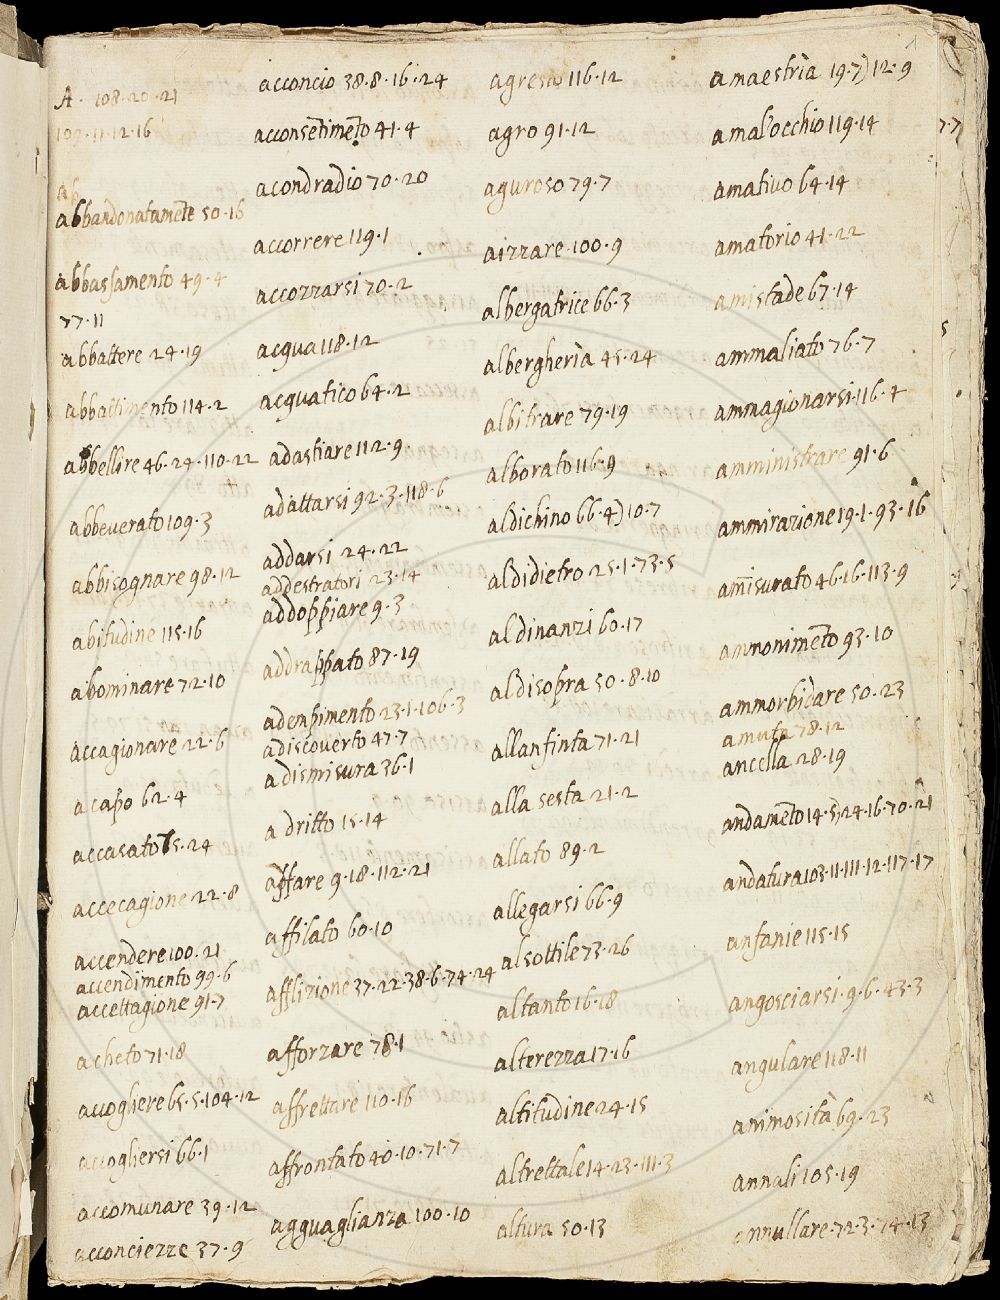 A. 108·20·21
109·11·12·16
ab
abbandonatamẽte 50·16
abbassamento 49·4
77·11
abbattere 24·19
abbattimento 114·2
abbellire 46·24·110·22
abbeverato 109·3
abbisognare 98·12
abitudine 115·16
abominare 72·10
accagionare 22·6
a capo 62·4
accasato 75·24
accecagione 22·8
accendere 100·21
accendimento 99·6
accettagione 91·7
acheto 71·18
accogliere 65·5·104·12
accogliersi 66·1
accomunare 39·12
acconciezze 37·9
acconcio 38·8·16·24
acconsẽtimẽto 41·4
acondradio 70·20
accorrere 119·1
accozzarsi 70·2
acqua 118·12
acquatico 64·2
adastiare 112·9
adattarsi 92·3·118·6
addarsi 24·22
addestratori 23·14
addoppiare 9·3
addrappato 87·19
adempimento 23·1·106·3
adiscoverto 47·7
adismisura 36·1
a dritto 15·14
affare 9·18·112·21
affilato 60·10
afflizione 37·22·38·6·74·24
afforzare 78·1
affrettare 110·16
affrontato 40·10·71·7
agguaglianza 100·10
agresto 116·12
agro 91·12
aguroso 79·7
aizzare 100·9
albergatrice 66·3
albergherìa 45·24
albitrare 79·19
alborato 116·9
aldichino 66·4) 10·7
aldidietro 25·1·73·5
aldinanzi 60·17
aldisopra 50·8·10
allanfinta 71·21
alla sesta 21·2
allato 89·2
allegarsi 66·9
alsottile 73·26
altanto 16·18
alterezza 17·16
altitudine 24·15
altrettale 14·23·111·3
altura 50·13
amaestrìa 19·7) 12·9
amal'occhio 119·14
amativo 64·14
amatorio 41·22
amistade 67·14
ammaliato 76·7
ammagionarsi 116·4
amministrare 91·6
ammirazione 19·1·93·16
am̃isurato 46·16·113·9
ammonimẽto 93·10
ammorbidare 50·23
amuta 78·12
ancella 28·19
andamẽto 14·5) 24·16·70·21
andatura 103·11·111·12·117·17
anfanie 115·15
angosciarsi·9·6·43·3
angulare 118·11
animosità 69·23
annali 105·19
annullare·72·3·74·13
7·7
5